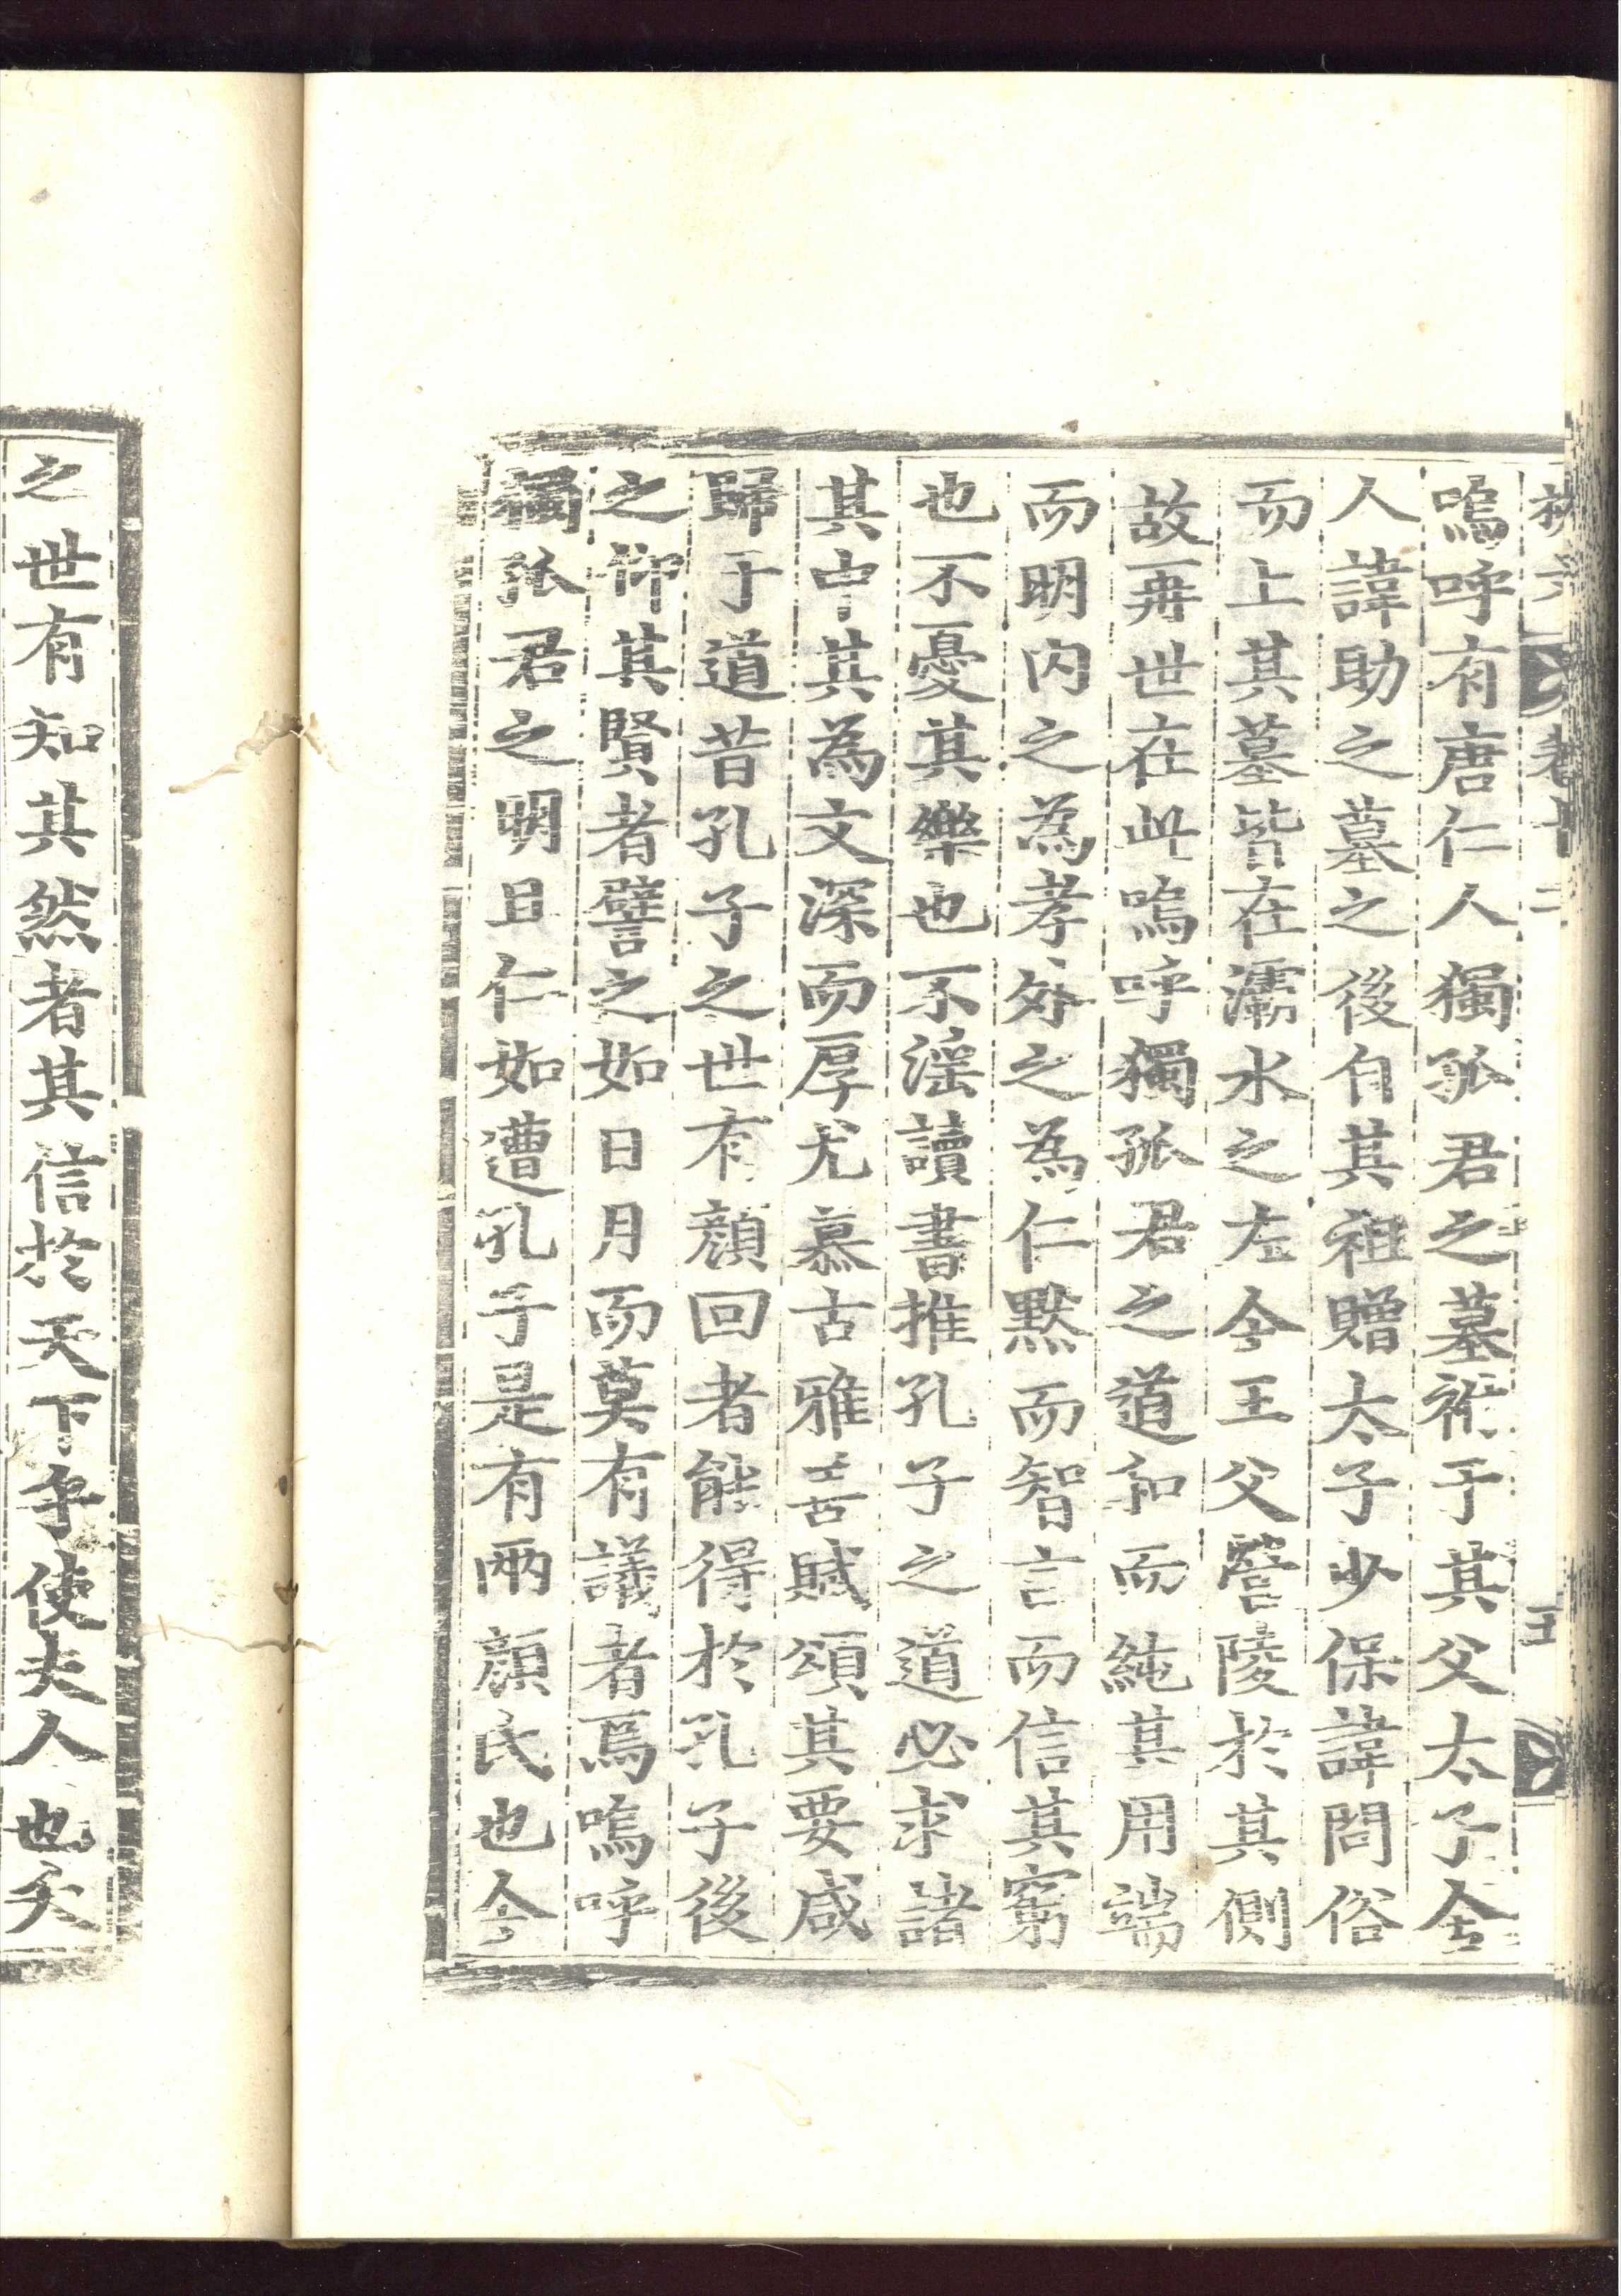 嗚呼有唐仁人獨孤君之墓祔于其父太子舍
人諱助之墓之後自其祖贈太子少保諱問俗
而上其墓皆在灞水之左今王父營陵於其側
故再世在此嗚呼獨孤君之道和而純其用端
而明内之為孝外之為仁默而智言而信其窮
也不憂其樂也不滛讀書推孔子之道必求諸
其中其為文深而厚尤慕古雅善賦頌其要咸
歸于道昔孔子之世有顔回者能得於孔子後
之仰其賢者譬之如日月而莫有議者焉嗚呼
獨孤君之明且仁如遭孔子是有兩顔氏也今
之世有知其然者其信於天下乎使夫人也夭